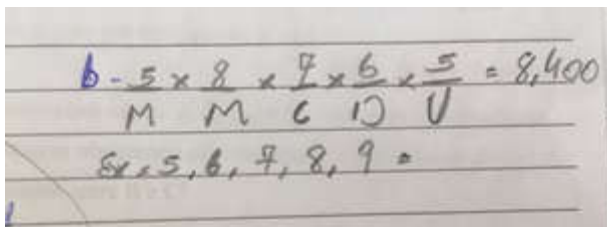 b- 5/M × 8/M × 7/C × 6/D × 5/U = 8,400
5, 6, 7, 8, 9 =